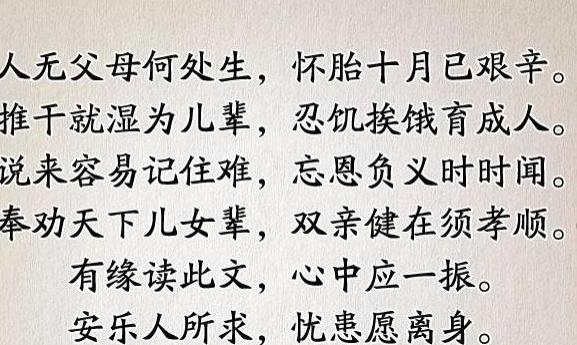 人无父母何处生，怀胎十月已艰辛。
推干就湿为儿辈，忍饥挨饿育成人。
说来容易记住难，忘恩负义时时闻。
奉劝天下儿女辈，双亲健在须孝顺。
有缘读此文，心中应一振。
安乐人所求，忧患愿离身。